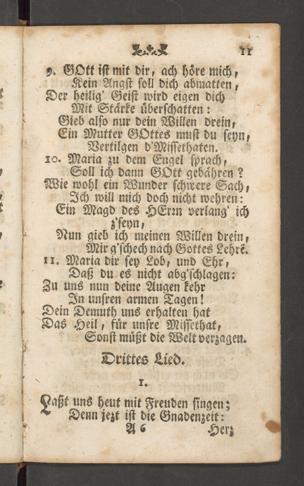 11
9. GOtt ist mit dir, ach höre mich,
Kein Angst soll dich abmatten,
Der heilig' Geist wird eigen dich
Mit Stärke überschatten:
Gieb also nur dein Willen drein,
Ein Mutter GOttes must du seyn,
Vertilgen d'Missethaten.
10. Maria zu dem Engel sprach,
Soll ich dann GOtt gebähren?
Wie wohl ein Wunder schwere Sach,
Ich will mich doch nicht wehren:
Ein Magd des HErrn verlang' ich
z'seyn,
Nun gieb ich meinen Willen drein,
Mir g'schech nach Gottes Lehrē.
11. Maria dir sey Lob, und Ehr,
Daß du es nicht abg'schlagen:
Zu uns nun deine Augen kehr
In unsren armen Tagen!
Dein Demuth uns erhalten hat
Das Heil, für unsre Missethat,
Sonst müßt die Welt verzagen.
Drittes Lied.
1.
Laßt uns heut mit Freuden singen;
Denn jezt ist die Gnadenzeit:
A 6 Herz